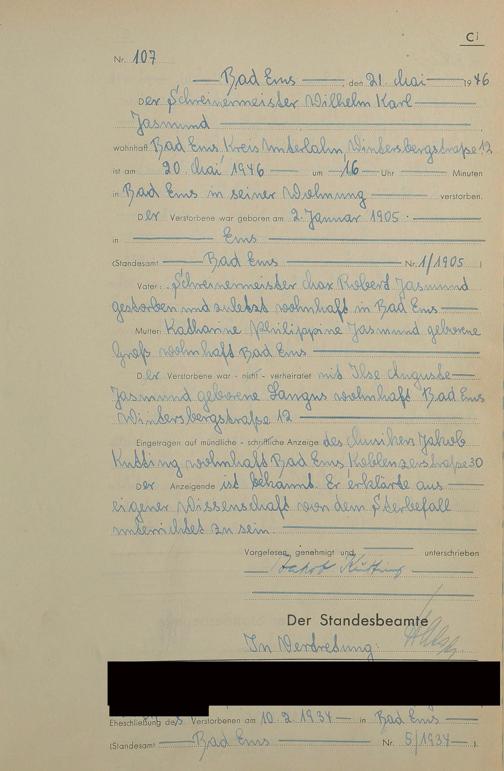 C i
Nr. 107
Bad Ems, den 21. Mai 1946
Der Schreinermeister Wilhelm Karl
Jasmund
wohnhaft Bad Ems, Kreis Unterlahn, Wintersbergstraße 12
ist am 20. Mai 1946 um 16 Uhr Minuten
in Bad Ems in seiner Wohnung verstorben.
Der Verstorbene war geboren am 2. Januar 1905.
in Ems
(Standesamt Bad Ems Nr. 1/1905)
Vater: Schreinermeister Max Robert Jasmund
gestorben und zuletzt wohnhaft in Bad Ems
Mutter: Katharine Philippine Jasmund geborene
Groß wohnhaft Bad Ems
Der Verstorbene war - nicht - verheiratet mit Ilse Auguste
Jasmund geborene wohnhaft Bad Ems
Wintersbergstraße 12
Eingetragen auf mündliche - schriftliche Anzeige des Musikers Jakob
Kütting wohnhaft Bad Ems, Koblenzerstraße 30
Der Anzeigende ist bekannt. Er erklärte aus
eigener Wissenschaft von dem Sterbefall
unterrichtet zu sein.
Vorgelesen, genehmigt und unterschrieben
Jakob Kütting
Der Standesbeamte
In Vertretung:
Eheschließung des Verstorbenen am 10.2.1934 in Bad Ems
(Standesamt Bad Ems Nr. 5/1934).